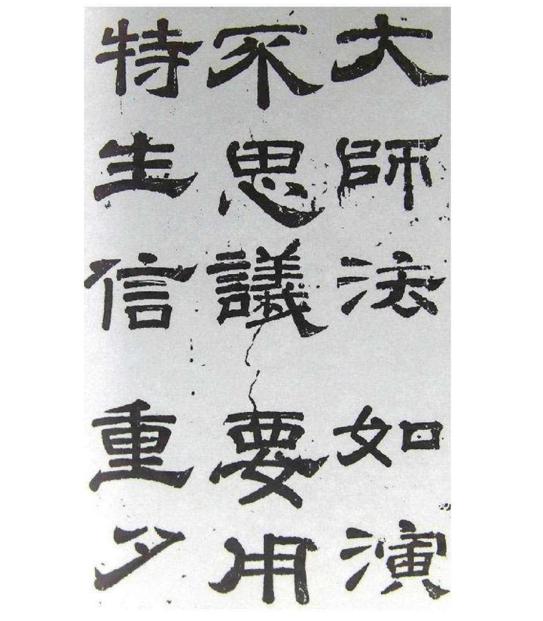 大師法如演
不思議要用
特生信重夕